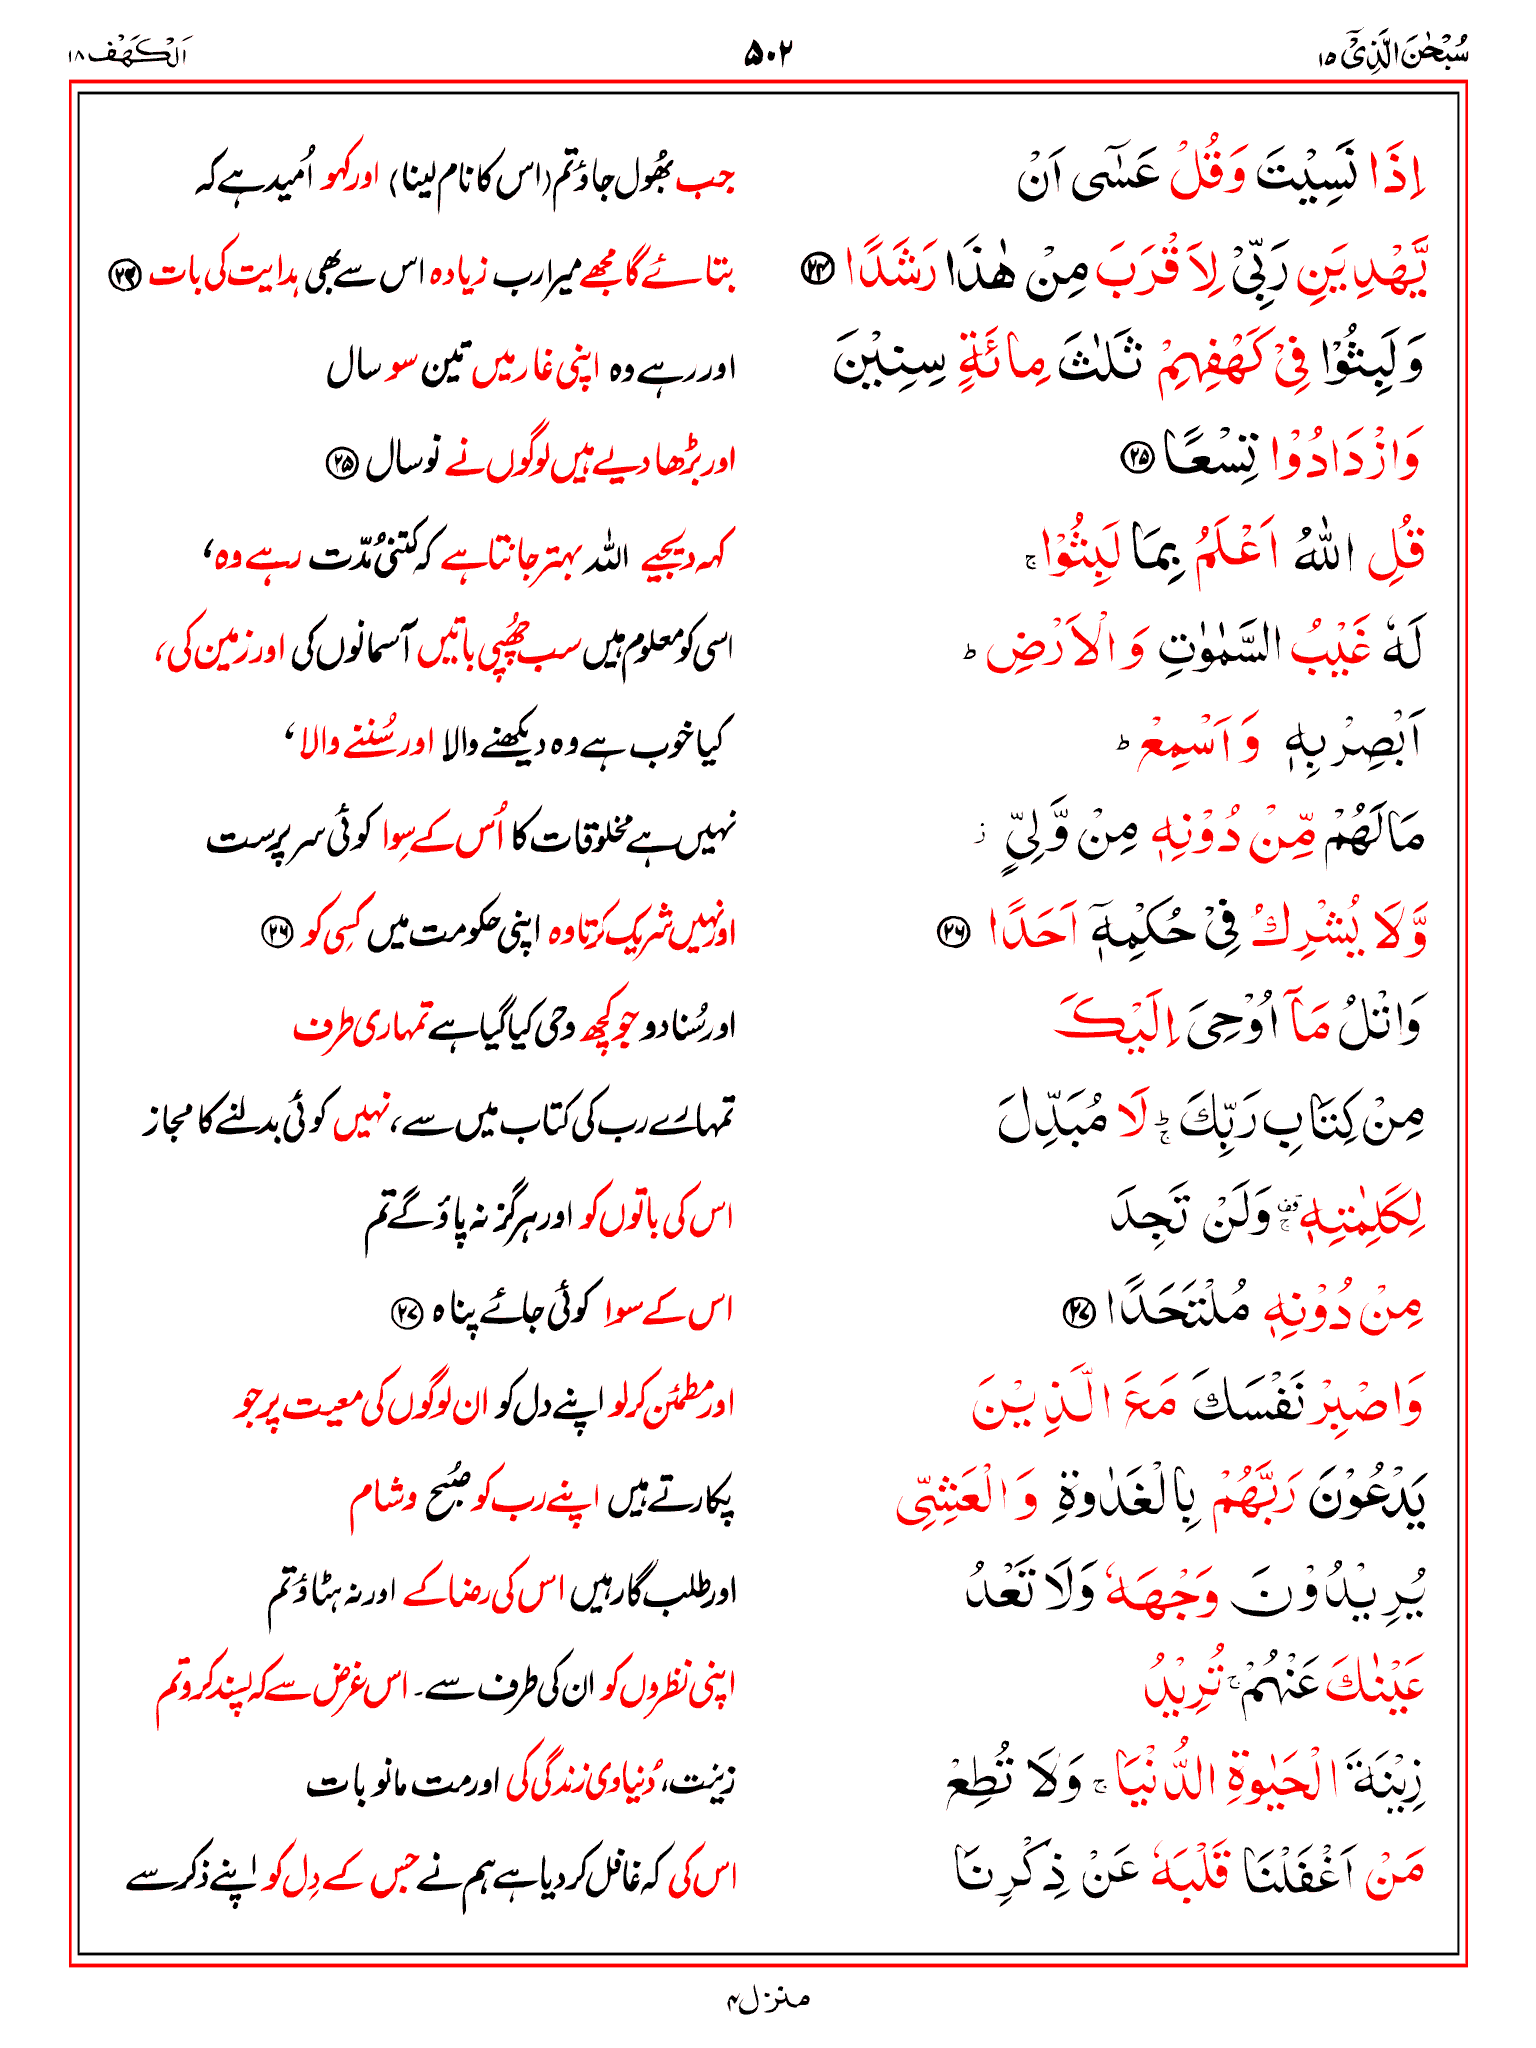 سُبْحٰنَ الَّذِیْۤ ۱۵ ۵۰۲ اَلْکَهْف ۱۸
اِذَا نَسِيْتَ وَقُلْ عَسٰۤى اَنْ جب بھُول جاؤ تم (اس کا نام لینا) اور کہو اُمید ہے کہ
يَّهْدِيَنِ رَبِّيْ لِاَقْرَبَ مِنْ هٰذَا رَشَدًا ۲۴ بتائے گا مجھے میرا رب زیادہ اس سے بھی ہدایت کی بات ۲۴
وَلَبِثُوْا فِيْ كَهْفِهِمْ ثَلٰثَ مِائَةٍ سِنِيْنَ اور رہے وہ اپنی غار میں تین سو سال
وَازْدَادُوْا تِسْعًا ۲۵ اور بڑھا دیے ہیں لوگوں نے نو سال ۲۵
قُلِ اللّٰهُ اَعْلَمُ بِمَا لَبِثُوْا ۚ کہہ دیجیے اللہ بہتر جانتا ہے کہ کتنی مُدّت رہے وہ،
لَهٗ غَيْبُ السَّمٰوٰتِ وَالْاَرْضِ ؕ اسی کو معلوم ہیں سب چھُپی باتیں آسمانوں کی اور زمین کی،
اَبْصِرْ بِهٖ وَاَسْمِعْ ؕ کیا خوب ہے وہ دیکھنے والا اور سُننے والا،
مَا لَهُمْ مِّنْ دُوْنِهٖ مِنْ وَّلِيٍّ ز نہیں ہے مخلوقات کا اُس کے سِوا کوئی سرپرست
وَّلَا يُشْرِكُ فِيْ حُكْمِهٖۤ اَحَدًا ۲۶ اور نہیں شریک کرتا وہ اپنی حکومت میں کِسی کو ۲۶
وَاتْلُ مَاۤ اُوْحِيَ اِلَيْكَ اور سُنا دو جو کچھ وحی کیا گیا ہے تمہاری طرف
مِنْ كِتَابِ رَبِّكَ ؕۚ لَا مُبَدِّلَ تمہارے رب کی کتاب میں سے، نہیں کوئی بدلنے کا مجاز
لِكَلِمٰتِهٖ ۚقف وَلَنْ تَجِدَ اس کی باتوں کو اور ہرگز نہ پاؤ گے تم
مِنْ دُوْنِهٖ مُلْتَحَدًا ۲۷ اس کے سوا کوئی جائے پناہ ۲۷
وَاصْبِرْ نَفْسَكَ مَعَ الَّذِيْنَ اور مطمئن کر لو اپنے دل کو ان لوگوں کی معیت پر جو
يَدْعُوْنَ رَبَّهُمْ بِالْغَدٰوةِ وَالْعَشِيِّ پکارتے ہیں اپنے رب کو صُبح وشام
يُرِيْدُوْنَ وَجْهَهٗ وَلَا تَعْدُ اور طلب گار ہیں اس کی رضا کے اور نہ ہٹاؤ تم
عَيْنٰكَ عَنْهُمْ ۚ تُرِيْدُ اپنی نظروں کو ان کی طرف سے۔ اس غرض سے کہ پسند کرو تم
زِيْنَةَ الْحَيٰوةِ الدُّنْيَا ۚ وَلَا تُطِعْ زینت، دُنیاوی زندگی کی اور مت مانو بات
مَنْ اَغْفَلْنَا قَلْبَهٗ عَنْ ذِكْرِنَا اس کی کہ غافل کر دیا ہے ہم نے جس کے دِل کو اپنے ذکر سے
منزل ۴